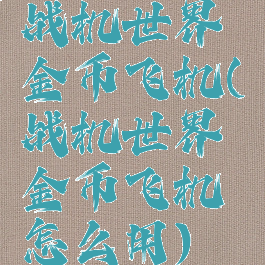 战机世界
金币飞机(
战机世界
金币飞机
怎么用)